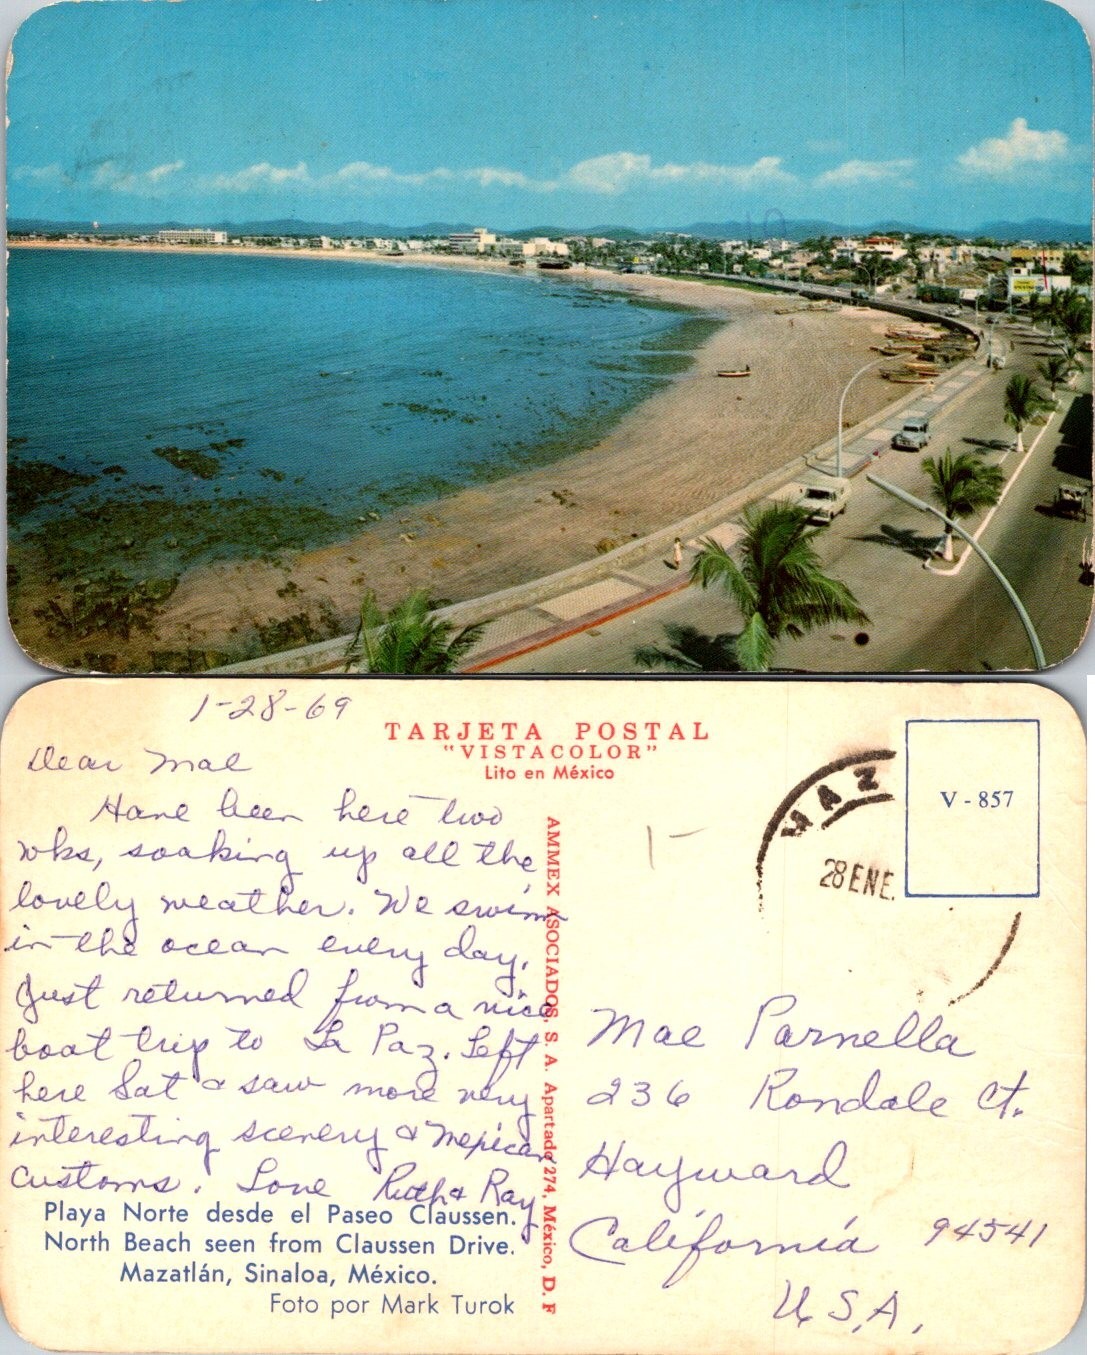 1-28-69
Dear Mae
Have been here two
wks, soaking up all the
lovely weather. We swim
in the ocean every day.
Just returned from a nice
boat trip to La Paz. Left
here Sat & saw more very
interesting scenery & Mexican
Customs. Love Ruth & Ray
Playa Norte desde el Paseo Claussen.
North Beach seen from Claussen Drive.
Mazatlán, Sinaloa, México.
Foto por Mark Turok
TARJETA POSTAL
"VISTACOLOR"
Lito en México
AMMEX ASOCIADOS, S. A. Apartado 274, México, D. F
1-
MAZ
28 ENE.
V - 857
Mae Parnella
236 Rondale Ct.
Hayward
California 94541
U.S.A.